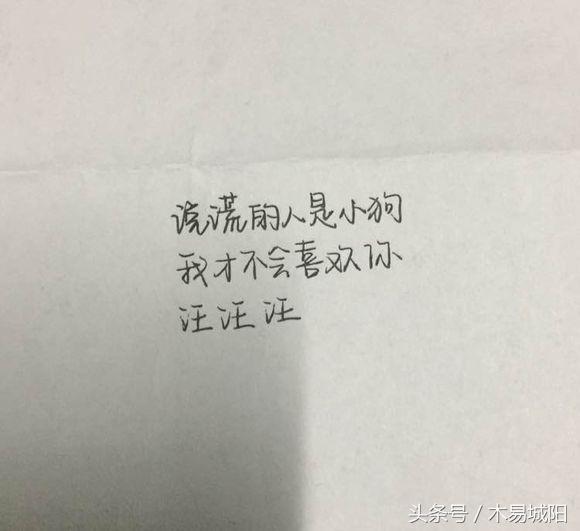 说谎的人是小狗
我才不会喜欢你
汪汪汪
头条号／木易城阳